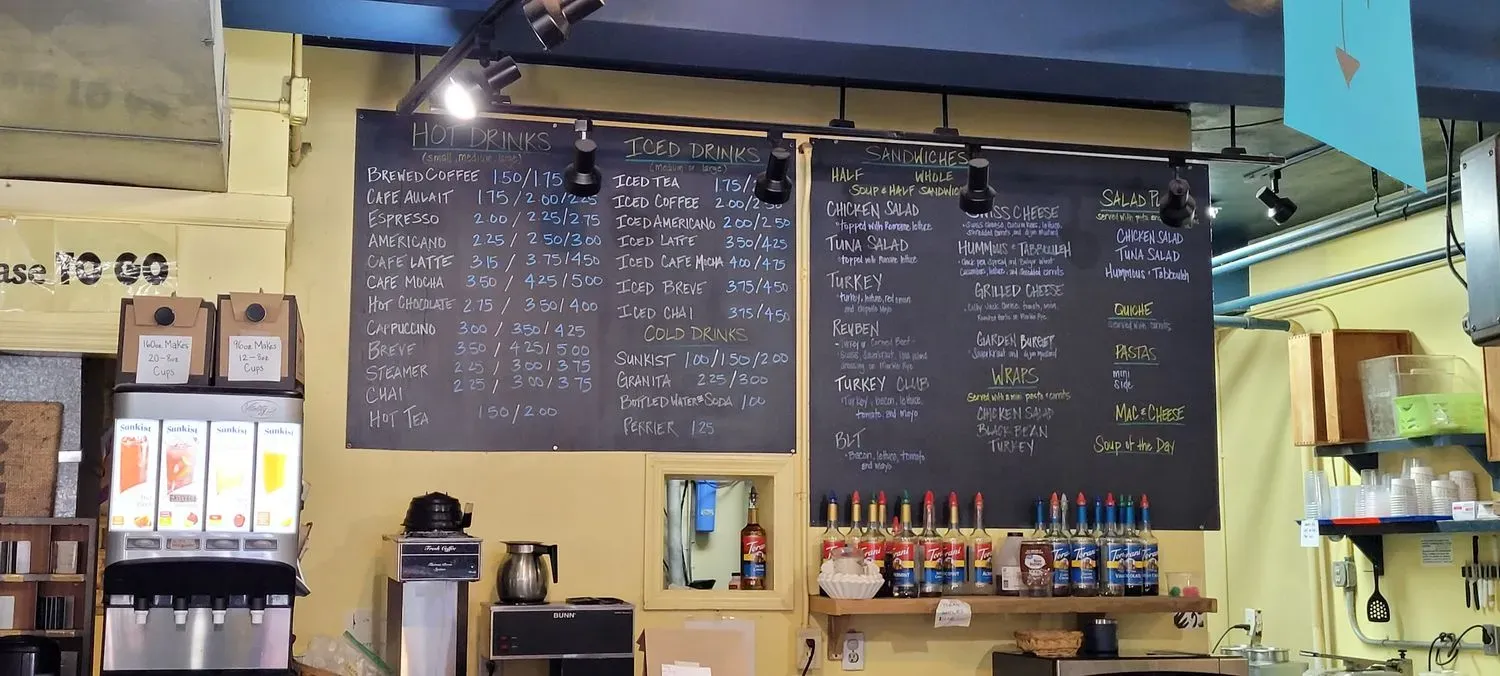 ase TO GO
160oz. Makes
20-8oz
Cups
96oz Makes
12-8oz
Cups
Sunkist
Sunkist
Sunkist
Sunkist
HOT DRINKS
(small, medium, large)
BREWED COFFEE 1.50/1.75
CAFE AULAIT 1.75 / 2.00/2.25
ESPRESSO 2.00 / 2.25/2.75
AMERICANO 2.25 / 2.50/3.00
CAFE LATTE 3.15 / 3.75/4.50
CAFE MOCHA 3.50 / 4.25/5.00
HOT CHOCOLATE 2.75 / 3.50/4.00
CAPPUCCINO 3.00 / 3.50/4.25
BREVE 3.50 / 4.25/5.00
STEAMER 2.25 / 3.00/3.75
CHAI 2.25 / 3.00/3.75
HOT TEA 1.50/2.00
ICED DRINKS
(medium or large)
ICED TEA 1.75/
ICED COFFEE 2.00/
ICED AMERICANO 2.00/2.50
ICED LATTE 3.50/4.25
ICED CAFE MOCHA 4.00/4.75
ICED BREVE 3.75/4.50
ICED CHAI 3.75/4.50
COLD DRINKS
SUNKIST 1.00/1.50/2.00
GRANITA 2.25/3.00
BOTTLED WATER & SODA 1.00
PERRIER 1.25
SANDWICHES
HALF WHOLE
SOUP & HALF SANDWIC
CHICKEN SALAD
•topped with Romaine lettuce
TUNA SALAD
•topped with Romaine lettuce
TURKEY
•turkey, lettuce, red onion
and chipotle Mayo
REUBEN
•Turkey or Corned Beef•
dressing on Marble Rye
TURKEY CLUB
•Turkey, bacon, lettuce,
tomato, and mayo
BLT
•Bacon, lettuce, tomato
and Mayo
SWISS CHEESE
shredded carrots, and dijon mustard
HUMMUS & TABBOULEH
cucumbers, lettuce, and shredded carrots
GRILLED CHEESE
GARDEN BURGER
WRAPS
Served with a mini pasta & carrots
CHICKEN SALAD
BLACK BEAN
TURKEY
SALAD
served with pita
CHICKEN SALAD
TUNA SALAD
Hummus & Tabbouleh
QUICHE
served with carrots
PASTAS
mini
side
MAC & CHEESE
Soup of the Day
Fresh Coffee
BUNN
Torani
Torani
Torani
Torani
Torani
Torani
Torani
Torani